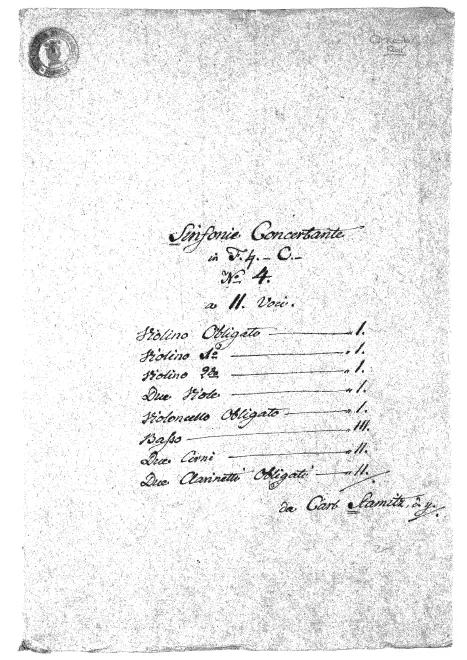 Sinfonie Concertante
in F. 4. - C. -
No. 4.
a 11. Voci.
Violino Obligato — " 1.
Violino 1mo — " 1.
Violino 2do — " 1.
Due Viole — " 1.
Violoncello Obligato — " 1.
Basso — " III.
Due Corni — " II.
Due Clarinetti Obligati — " II.
da Carl Stamitz.